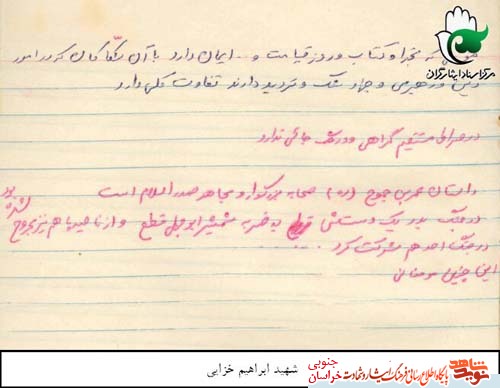 مرکز اسناد ایثارگران
که بخدا و کتاب و روز قیامت و .. ایمان دارد با آن شکاکان که در امور
دین و رهبری و جهاد شک و تردید دارند تفاوت کلی دارد
در صراط مستقیم گمراهی و در شک جائی ندارد
داستان عمر بن جموح (ره) صحابه بزرگوار و مجاهد صدر اسلام است
در جنگ بدر یک دستاش قطع به ضربه شمشیر ابوجهل قطع و از ناحیه پا هم نیز مجروح شده بود
در جنگ احد هم شرکت کرد .....
این چنین مومنانی
شهید ابراهیم خزایی
نوید شاهد
پایگاه اطلاع رسانی فرهنگ ایثار و شهادت خراسان جنوبی